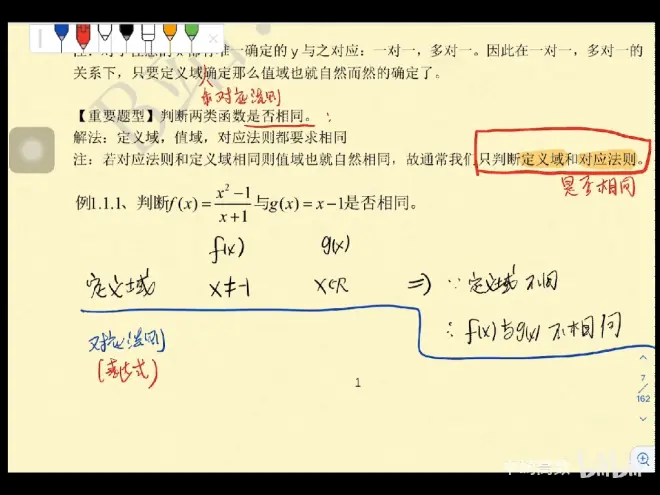 一确定的y与之对应：一对一，多对一。因此在一对一，多对一的
关系下，只要定义域确定那么值域也就自然而然的确定了。
和对应法则
【重要题型】判断两类函数是否相同。
解法：定义域，值域，对应法则都要求相同
注：若对应法则和定义域相同则值域也就自然相同，故通常我们只判断定义域和对应法则。
是否相同
例1.1.1、判断f(x)=\frac{x^2-1}{x+1}与g(x)=x-1是否相同。
f(x) g(x)
定义域 x≠-1 x∈R ⇒ ∵定义域不同
∴f(x)与g(x)不相同
对应法则
(表达式)
1
7
/
162